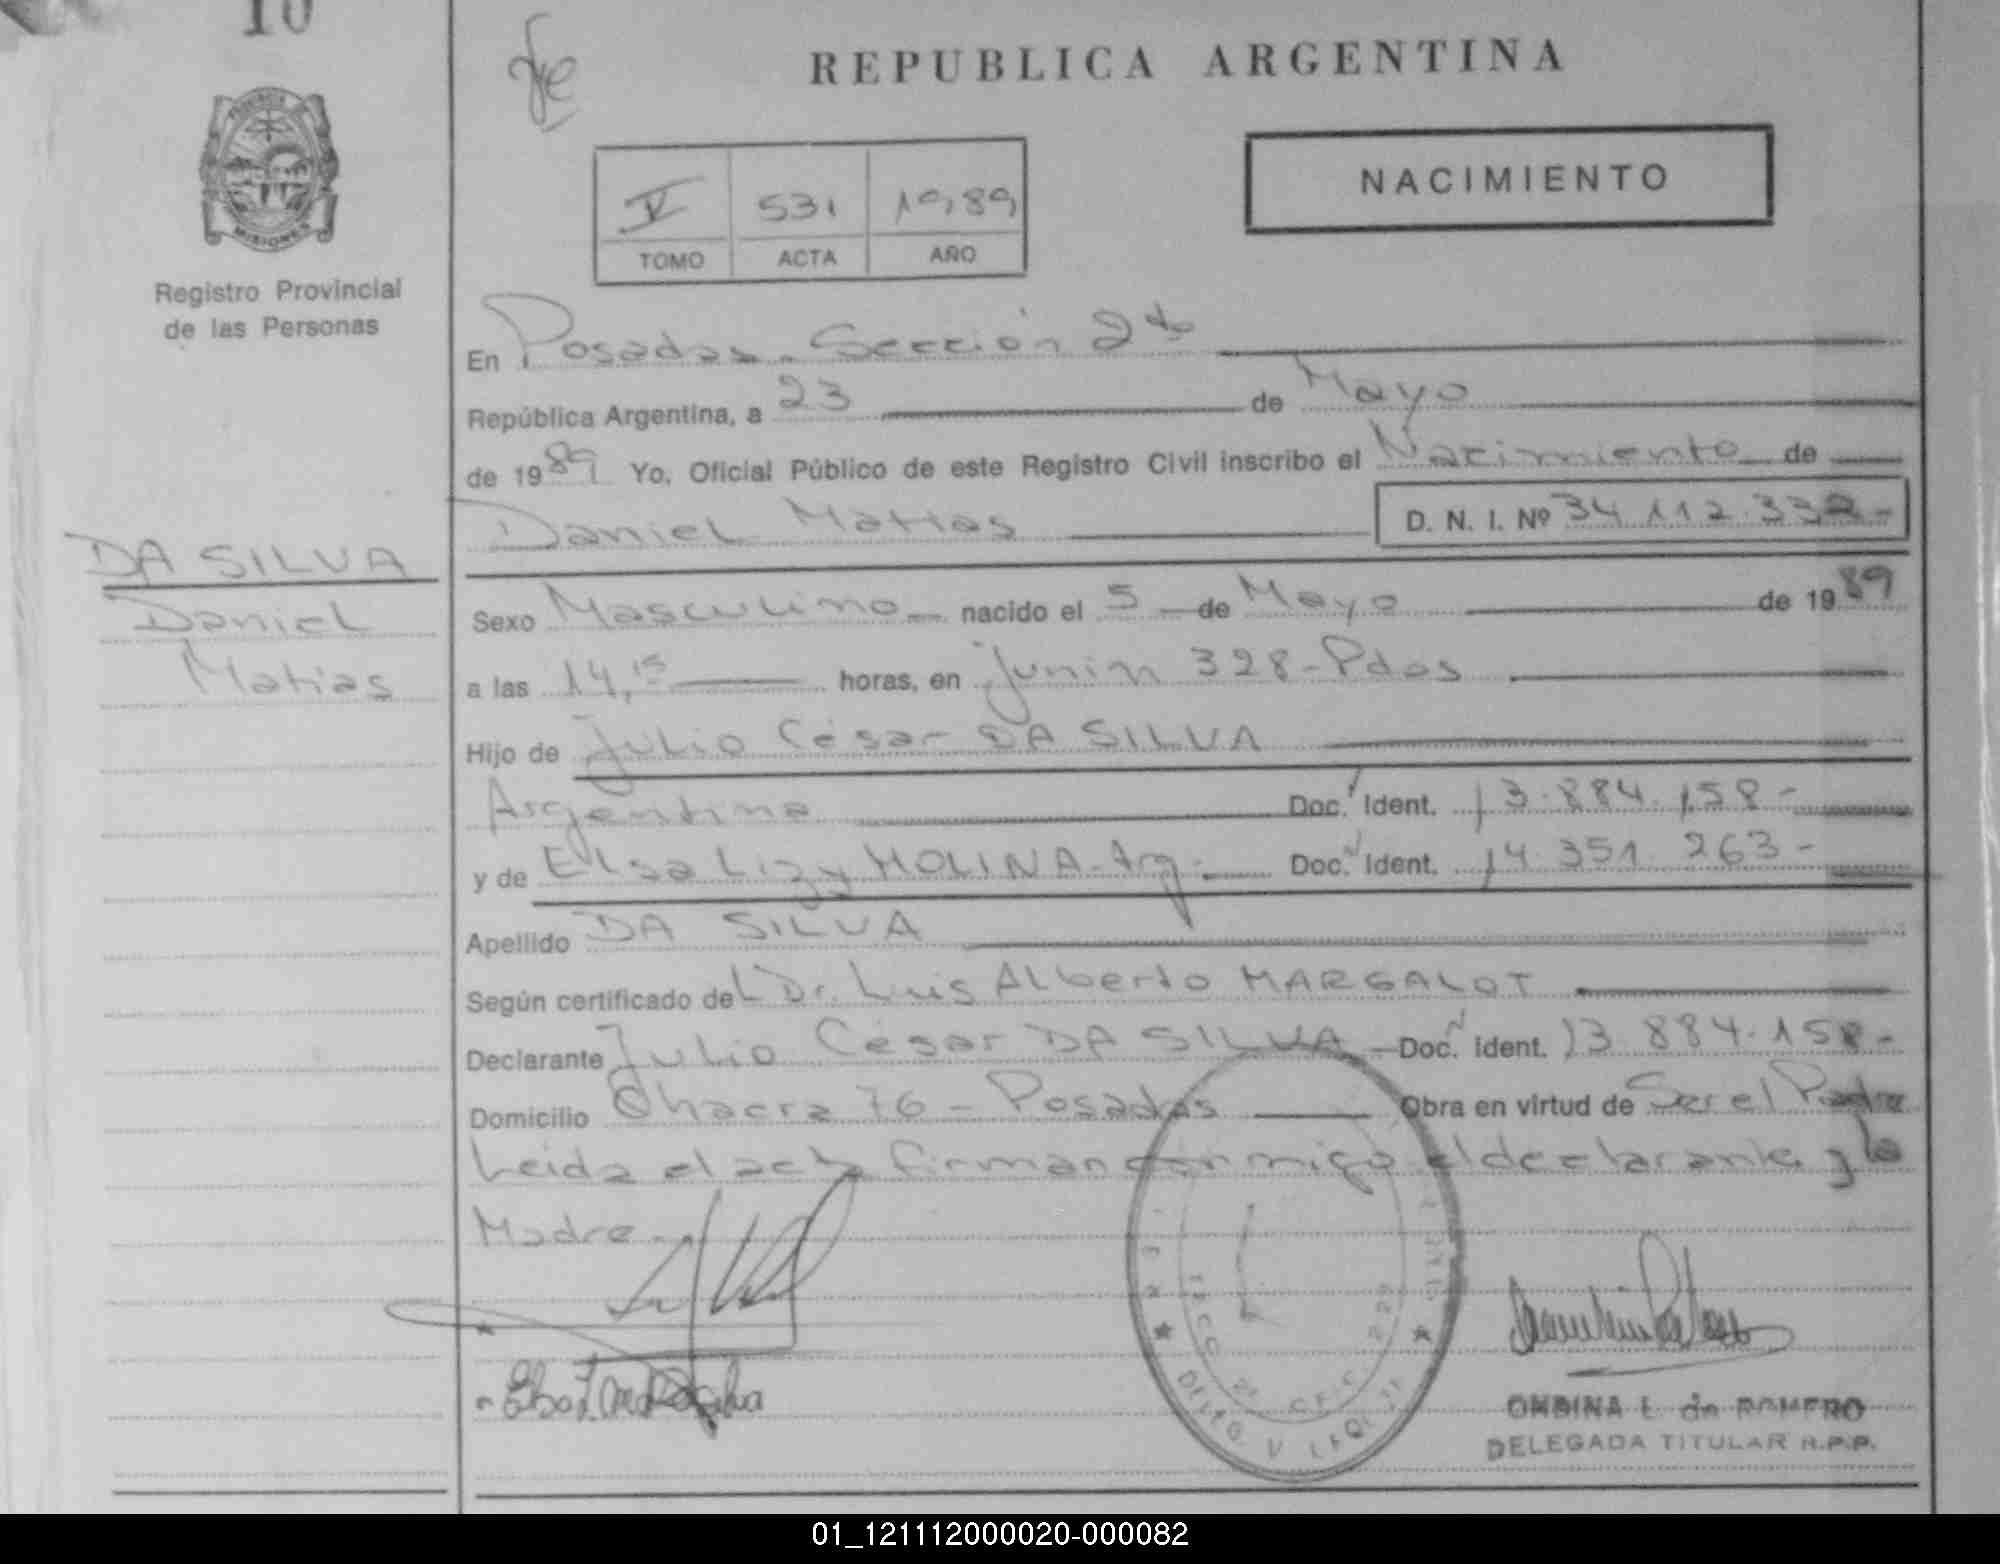 10
REPUBLICA ARGENTINA
PROVINCIA
MISIONES
Registro Provincial
de las Personas
V 531 1989
TOMO ACTA AÑO
NACIMIENTO
En Posadas - Sección 2da
República Argentina, a 23 de Mayo
de 1989 Yo, Oficial Público de este Registro Civil inscribo el Nacimiento de
Daniel Matias D. N. I. Nº 34.112.332-
DA SILVA
Daniel
Matias
Sexo Masculino nacido el 5 de Mayo de 1989
a las 14,15 horas, en Junin 328 - Pdas
Hijo de Julio César DA SILVA
Argentina Doc. Ident. 13.884.158-
y de Elsa Lizy MOLINA - Arg. Doc. Ident. 14.351.263-
Apellido DA SILVA
Según certificado del Dr. Luis Alberto MARGALOT
Declarante Julio César DA SILVA - Doc. Ident. 13.884.158-
Domicilio Chacra 76 - Posadas Obra en virtud de Ser el Padre
Leida el acta firman conmigo el declarante y la
Madre -
ONDINA L. de ROMERO
DELEGADA TITULAR R.P.P.
01_121112000020-000082